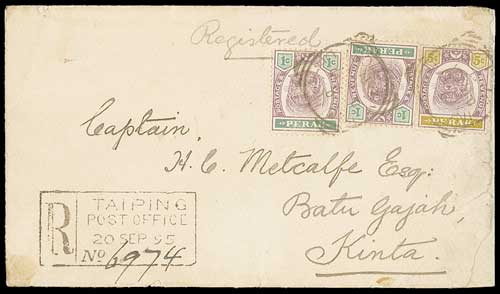 Registered
1c 1c
POSTAGE & REVENUE
PERAK
1c 1c
POSTAGE & REVENUE
PERAK
5c 5c
POSTAGE & REVENUE
PERAK
Captain,
H. C. Metcalfe Esq:
Batu Gajah,
Kinta.
R
TAIPING
POST OFFICE
20 SEP 95
No 6974